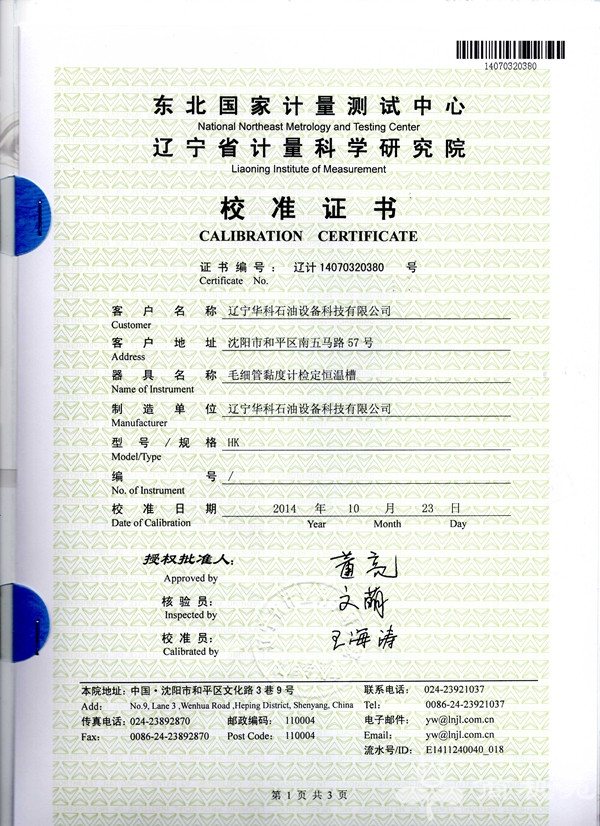 14070320380
东北国家计量测试中心
National Northeast Metrology and Testing Center
辽宁省计量科学研究院
Liaoning Institute of Measurement
校准证书
CALIBRATION CERTIFICATE
证书编号: 辽计14070320380 号
Certificate No.
客户名称 辽宁华科石油设备科技有限公司
Customer
客户地址 沈阳市和平区南五马路57号
Address
器具名称 毛细管黏度计检定恒温槽
Name of Instrument
制造单位 辽宁华科石油设备科技有限公司
Manufacturer
型号/规格 HK
Model/Type
编号 /
No. of Instrument
校准日期 2014 年 10 月 23 日
Date of Calibration Year Month Day
授权批准人:
Approved by
核验员: 文萌
Inspected by
校准员: 王海涛
Calibrated by
本院地址: 中国·沈阳市和平区文化路3巷9号 联系电话: 024-23921037
Add: No.9, Lane 3 ,Wenhua Road ,Heping District, Shenyang, China Tel: 0086-24-23921037
传真电话: 024-23892870 邮政编码: 110004 电子邮件: yw@lnjl.com.cn
Fax: 0086-24-23892870 Post Code: 110004 Email: yw@lnjl.com.cn
流水号/ID: E1411240040_018
第1页共3页